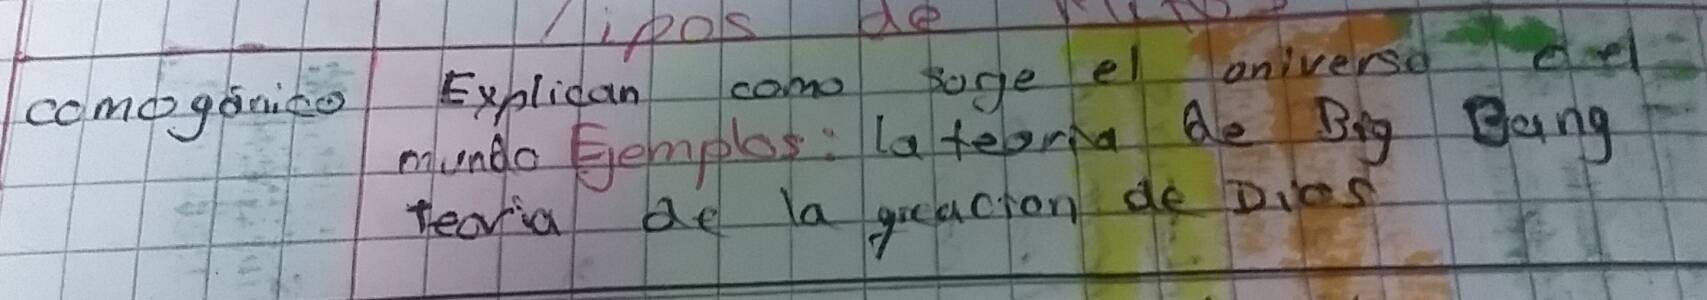 Tipos de Mitos
comogónico
Explican como soge el oniverso o el
mundo Ejemplos: la teoria de Big Bang
teoria de la greacion de Dios